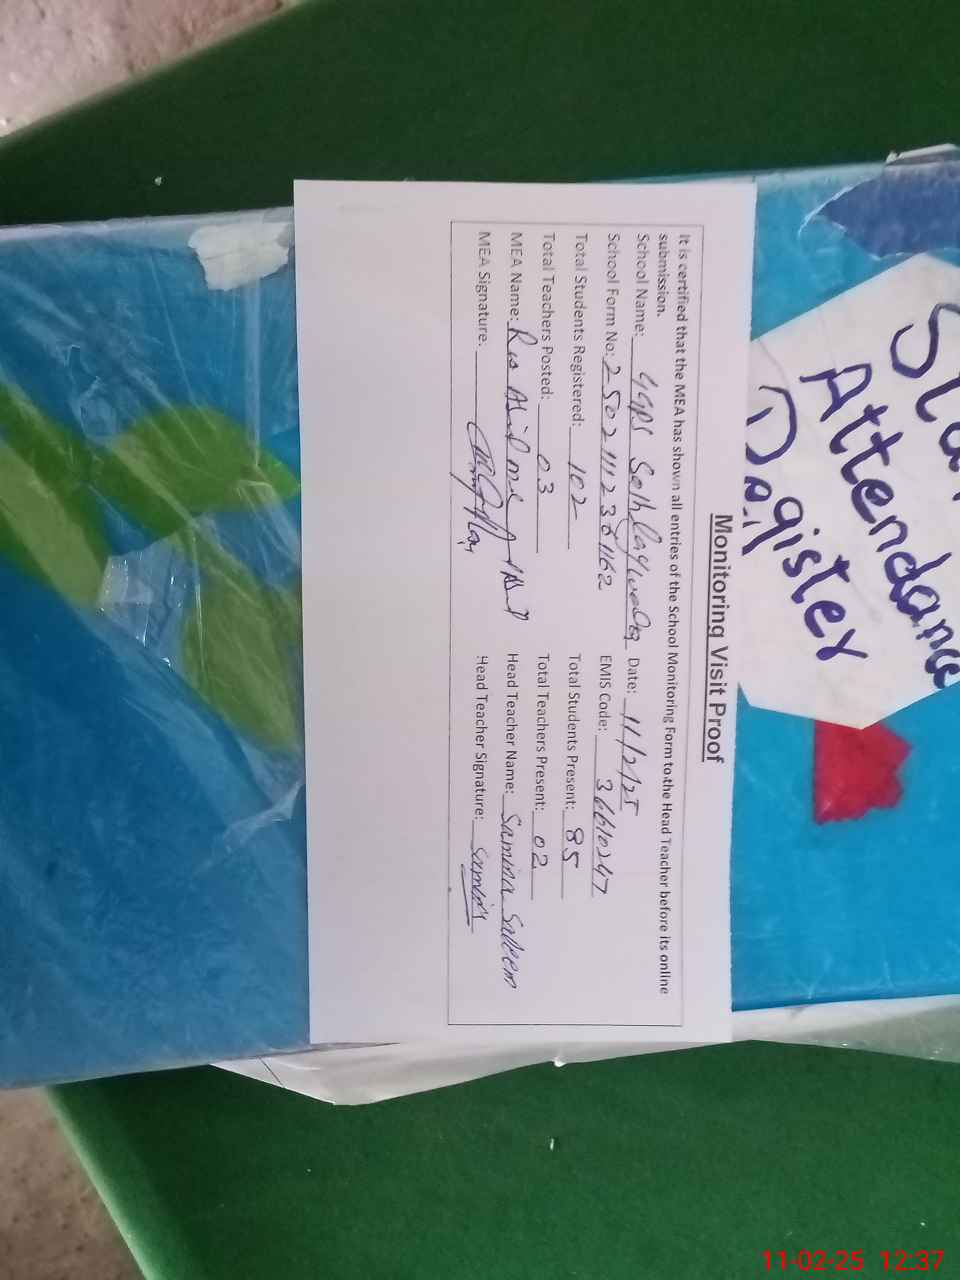 Sta
Attendance
Register
Monitoring Visit Proof
It is certified that the MEA has shown all entries of the School Monitoring Form to the Head Teacher before its online
submission.
School Name: GGPS Date: 11/2/25
School Form No: EMIS Code: 36610247
Total Students Registered: 102 Total Students Present: 85
Total Teachers Posted: 03 Total Teachers Present: 02
MEA Name: Head Teacher Name: Samina Saleem
MEA Signature: Head Teacher Signature: Samina
11-02-25 12:37